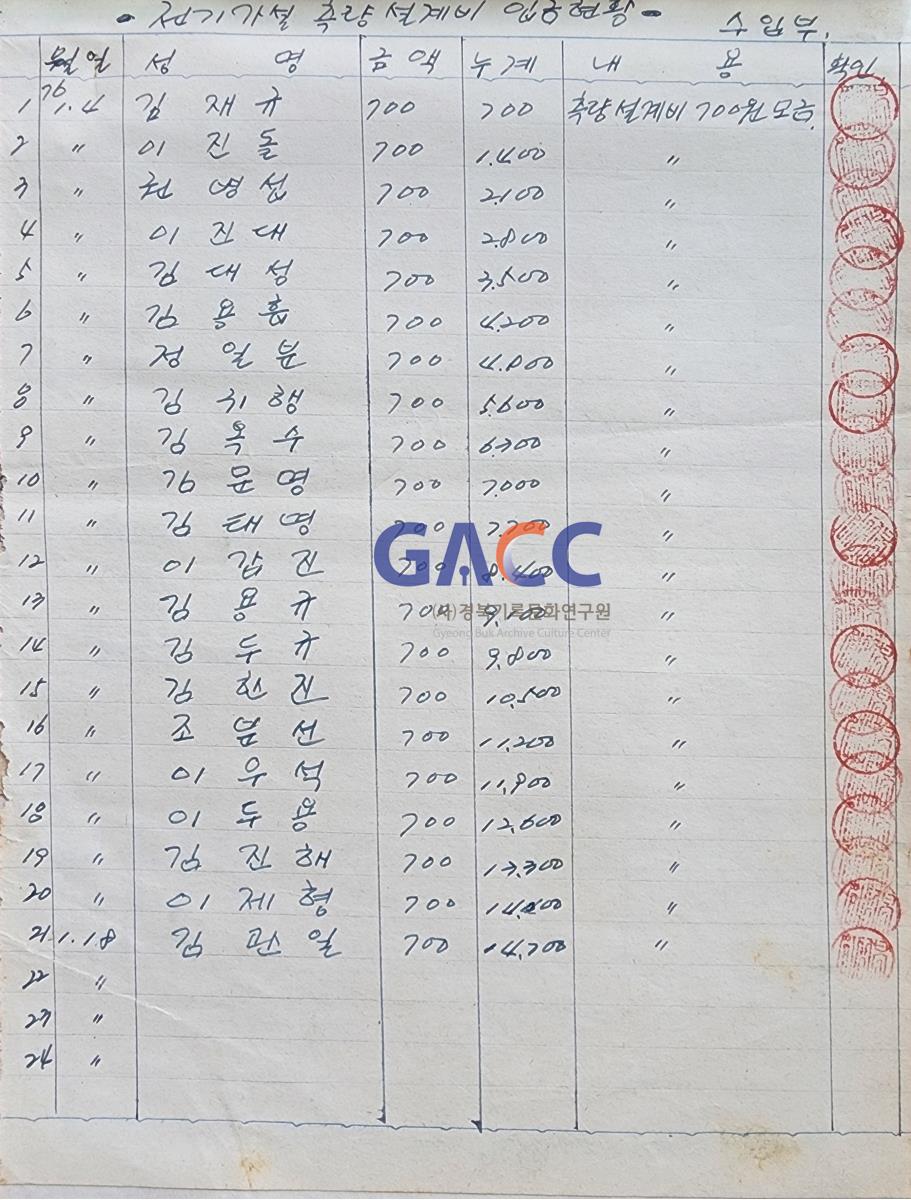 - 전기가설 측량 설계비 입금현황 -
수입부.
월일 성 명 금액 누계 내 용 확인
1 76 1.4 김재규 700 700 측량설계비 700원 모금.
2 〃 이진돌 700 1.400 〃
3 〃 권병섭 700 2.100 〃
4 〃 이진대 700 2.800 〃
5 〃 김대성 700 3.500 〃
6 〃 김용흡 700 4.200 〃
7 〃 정일분 700 4.900 〃
8 〃 김휘행 700 5.600 〃
9 〃 김옥수 700 6.300 〃
10 〃 김문영 700 7.000 〃
11 〃 김태영 700 7.700 〃
12 〃 이갑진 700 8.400 〃
13 〃 김용규 700 9.100 〃
14 〃 김두규 700 9.800 〃
15 〃 김한진 700 10.500 〃
16 〃 조분선 700 11.200 〃
17 〃 이우석 700 11.900 〃
18 〃 이두용 700 12.600 〃
19 〃 김진해 700 13.300 〃
20 〃 이제형 700 14.000 〃
21 1.18 김관일 700 14.700 〃
22 〃
23 〃
24 〃
GACC
(사)경북기록문화연구원
Gyeong Buk Archive Culture Center